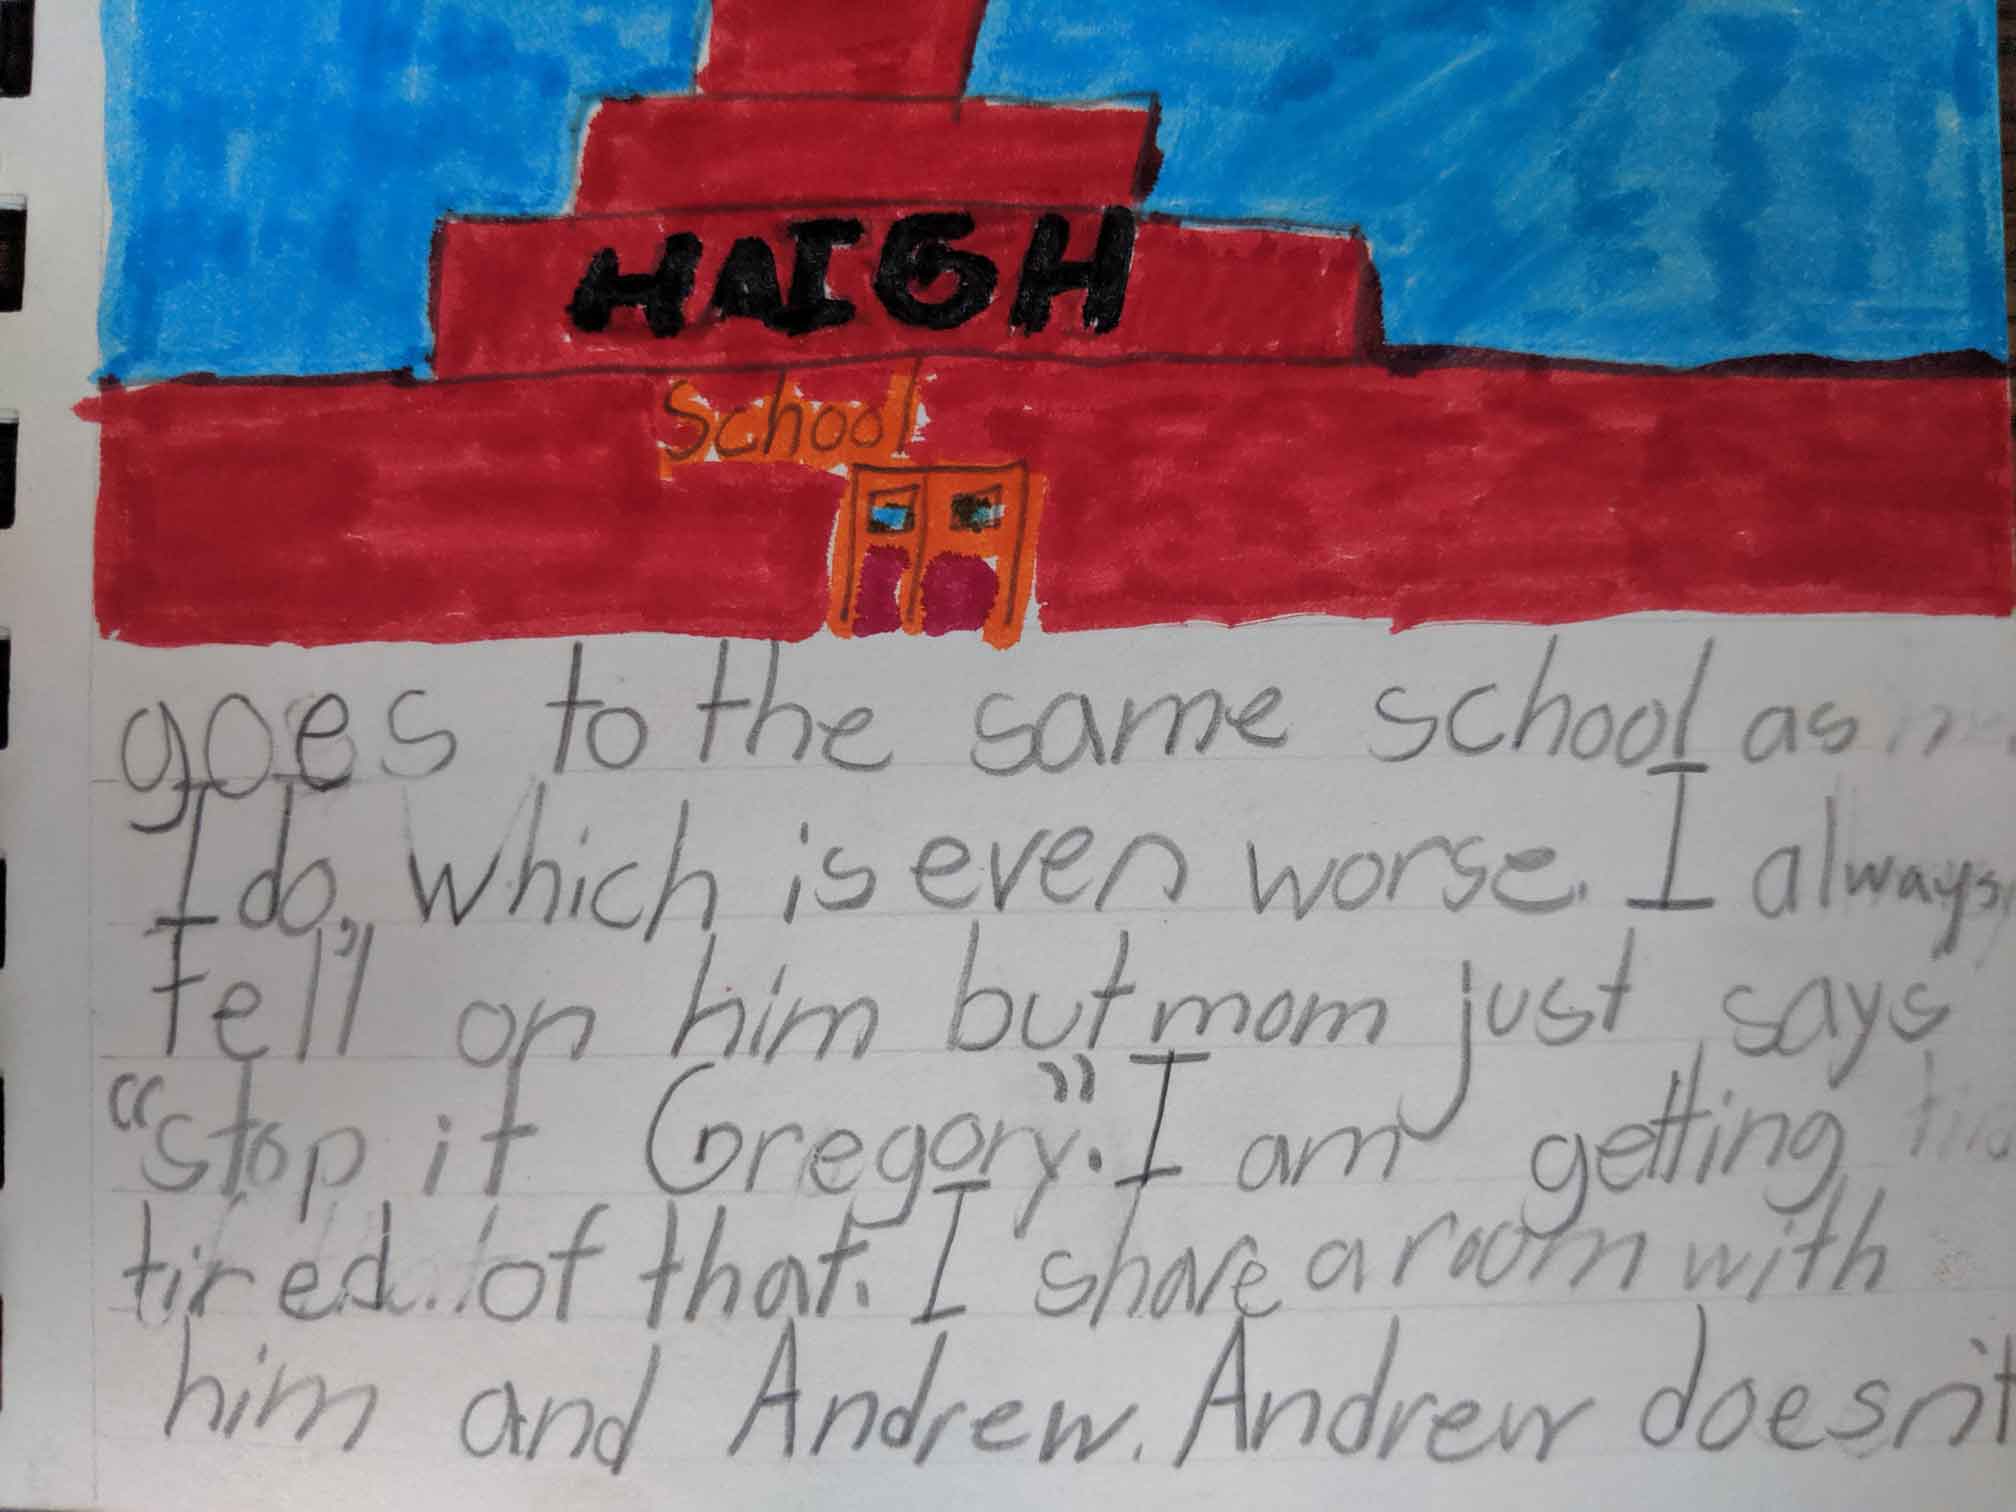 HAIGH
School
goes to the same school as
I do, which is even worse. I always
tell on him but mom just says
“stop it Gregory”. I am getting
tired of that. I share a room with
him and Andrew. Andrew doesn't